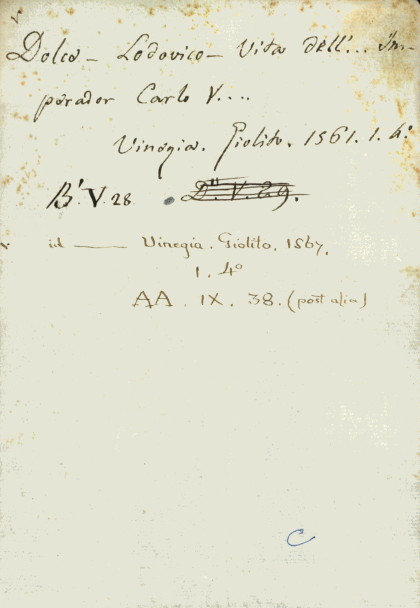 Dolce - Lodovico - Vita dell'... Im-
perador Carlo V....
Vinegia. Giolito. 1561. 1. 4°.
B'. V. 28. D". V. 29.
id —— Vinegia. Giolito. 1567.
1. 4°
AA. IX. 38. (post alia)
C